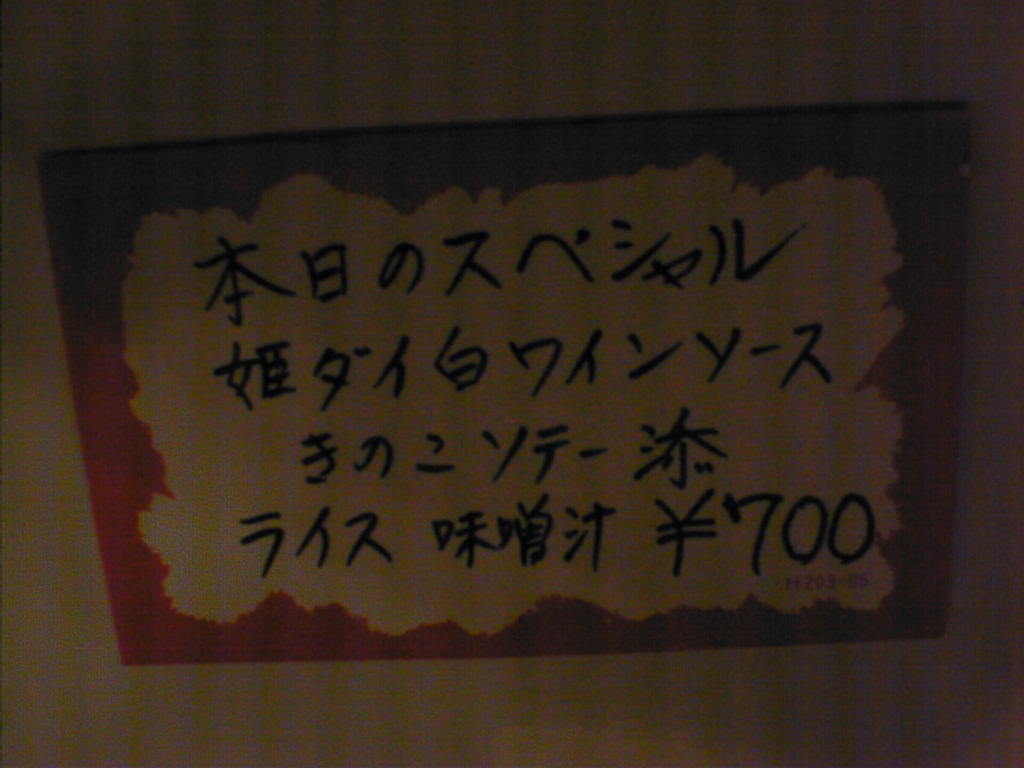 本日のスペシャル
姫ダイ白ワインソース
きのこソテー添
ライス 味噌汁 ¥700
H203-05